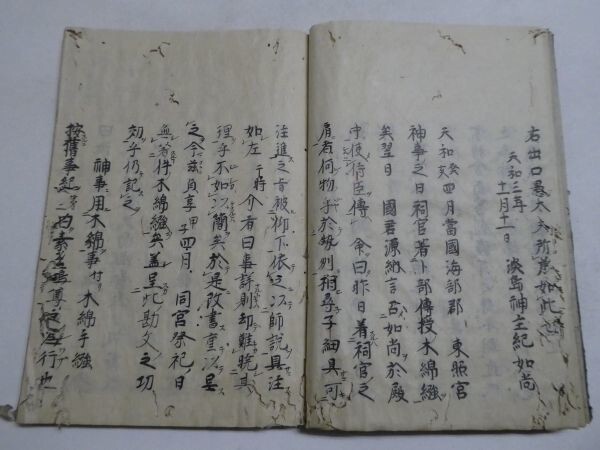 右出口 大夫所 如此也
天和三年
十一月十一日 淡島神主紀如尚
天和癸亥四月當國海部郡 東照宮
神事之日祠官著卜部傳授木綿繦
矣翌日 國君源納言 召如尚於殿
中使侍臣傳 命曰昨日著祠官之
肩者何物乎於 別相尋子細具可
注進之旨被仰下依之以師說具注
如左 介者曰事詳則却難曉其
理乎不如以簡矣於是改書 以呈
之今 貞享甲子四月 同宮祭祀日
無著件木綿繦矣蓋呈此勘文之功
効乎仍記之
神事用木綿事 付 木綿手繦
按舊事紀ニ曰素戔嗚尊之 行也